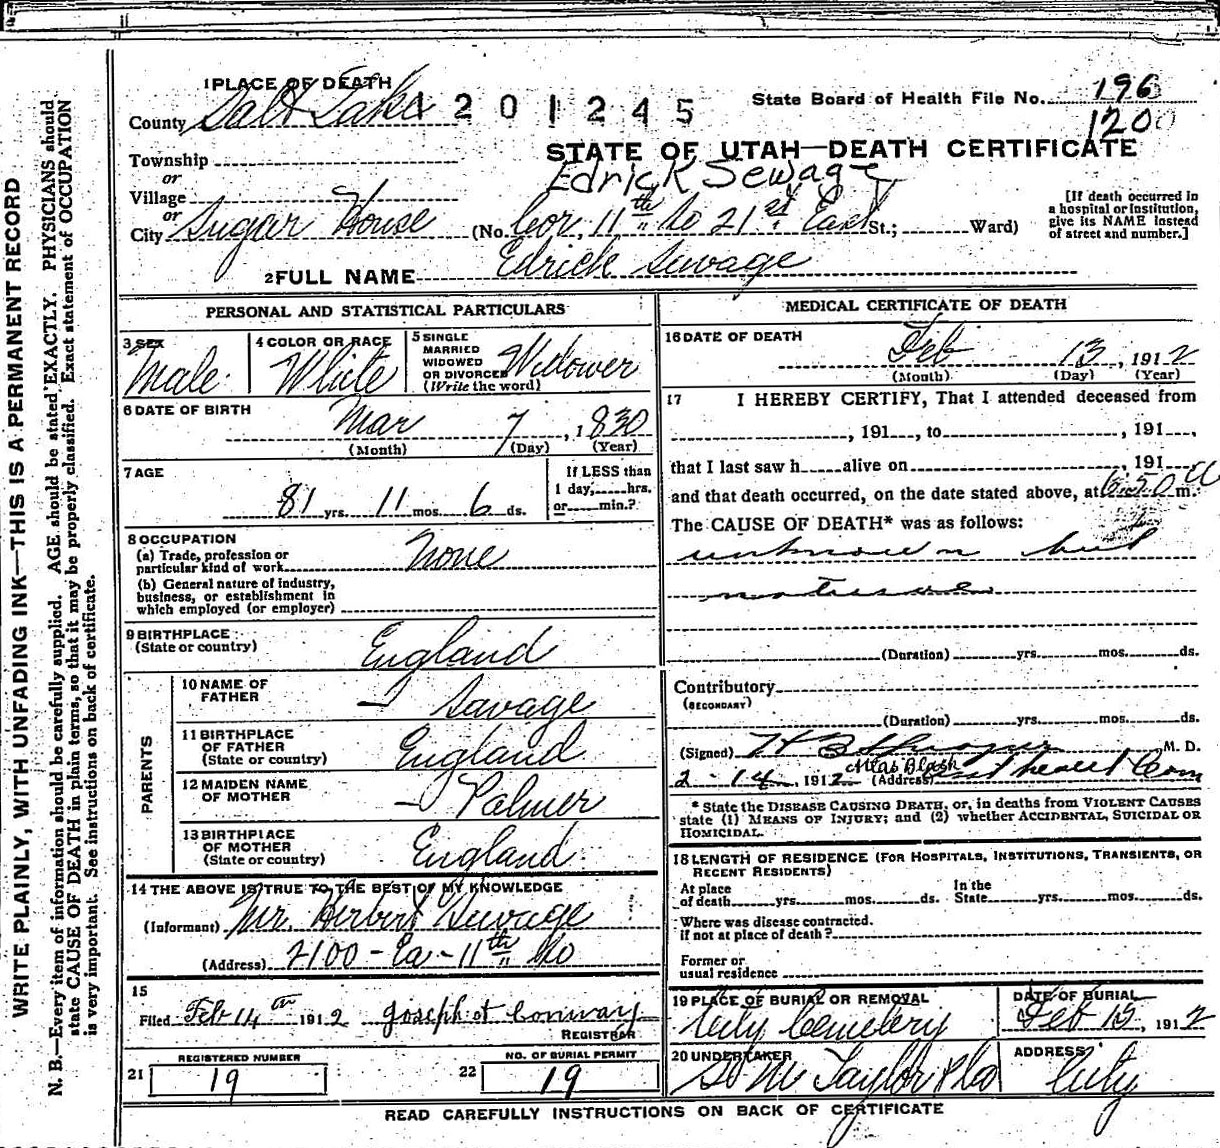 1 PLACE OF DEATH
County Salt Lake 1201245 State Board of Health File No. 196
120
Township
or
STATE OF UTAH—DEATH CERTIFICATE
Village
or
Edrick Sewage
City Sugar House (No. Cor. 11th So 21st East St.; Ward)
[If death occurred in
a hospital or institution,
give its NAME instead
of street and number.]
2 FULL NAME Edrick Savage
PERSONAL AND STATISTICAL PARTICULARS
3 SEX
Male
4 COLOR OR RACE
White
5 SINGLE
MARRIED
WIDOWED
OR DIVORCED
(Write the word)
Widower
6 DATE OF BIRTH
Mar 7, 1830
(Month) (Day) (Year)
7 AGE
81 yrs. 11 mos. 6 ds.
If LESS than
1 day, hrs.
or min.?
8 OCCUPATION
(a) Trade, profession or
particular kind of work None
(b) General nature of industry,
business, or establishment in
which employed (or employer)
9 BIRTHPLACE
(State or country) England
PARENTS
10 NAME OF
FATHER — Savage
11 BIRTHPLACE
OF FATHER
(State or country) England
12 MAIDEN NAME
OF MOTHER — Palmer
13 BIRTHPLACE
OF MOTHER
(State or country) England
14 THE ABOVE IS TRUE TO THE BEST OF MY KNOWLEDGE
(Informant) Mr. Herbert Savage
(Address) 2100 - Ea - 11th So
15
Filed Feb 14th 1912 Joseph H Conway
REGISTRAR
REGISTERED NUMBER
21 19
NO. OF BURIAL PERMIT
22 19
MEDICAL CERTIFICATE OF DEATH
16 DATE OF DEATH
Feb 13, 1912
(Month) (Day) (Year)
17 I HEREBY CERTIFY, That I attended deceased from
, 191 , to , 191 ,
that I last saw h alive on , 191
and that death occurred, on the date stated above, at 6:50 a m.
The CAUSE OF DEATH* was as follows:
unknown but
natural
(Duration) yrs. mos. ds.
Contributory
(SECONDARY)
(Duration) yrs. mos. ds.
(Signed) M. D.
2-14, 1912 (Address) Com
* State the DISEASE CAUSING DEATH, or, in deaths from VIOLENT CAUSES
state (1) MEANS OF INJURY; and (2) whether ACCIDENTAL, SUICIDAL OR
HOMICIDAL.
18 LENGTH OF RESIDENCE (FOR HOSPITALS, INSTITUTIONS, TRANSIENTS, OR
RECENT RESIDENTS)
At place
of death yrs. mos. ds.
In the
State yrs. mos. ds.
Where was disease contracted.
if not at place of death?
Former or
usual residence
19 PLACE OF BURIAL OR REMOVAL
City Cemetery
DATE OF BURIAL
Feb 15, 1912
20 UNDERTAKER
S. M. Taylor & Co
ADDRESS
City
READ CAREFULLY INSTRUCTIONS ON BACK OF CERTIFICATE
WRITE PLAINLY, WITH UNFADING INK—THIS IS A PERMANENT RECORD
N. B.—Every item of information should be carefully supplied. AGE should be stated EXACTLY. PHYSICIANS should
state CAUSE OF DEATH in plain terms, so that it may be properly classified. Exact statement of OCCUPATION
is very important. See instructions on back of certificate.